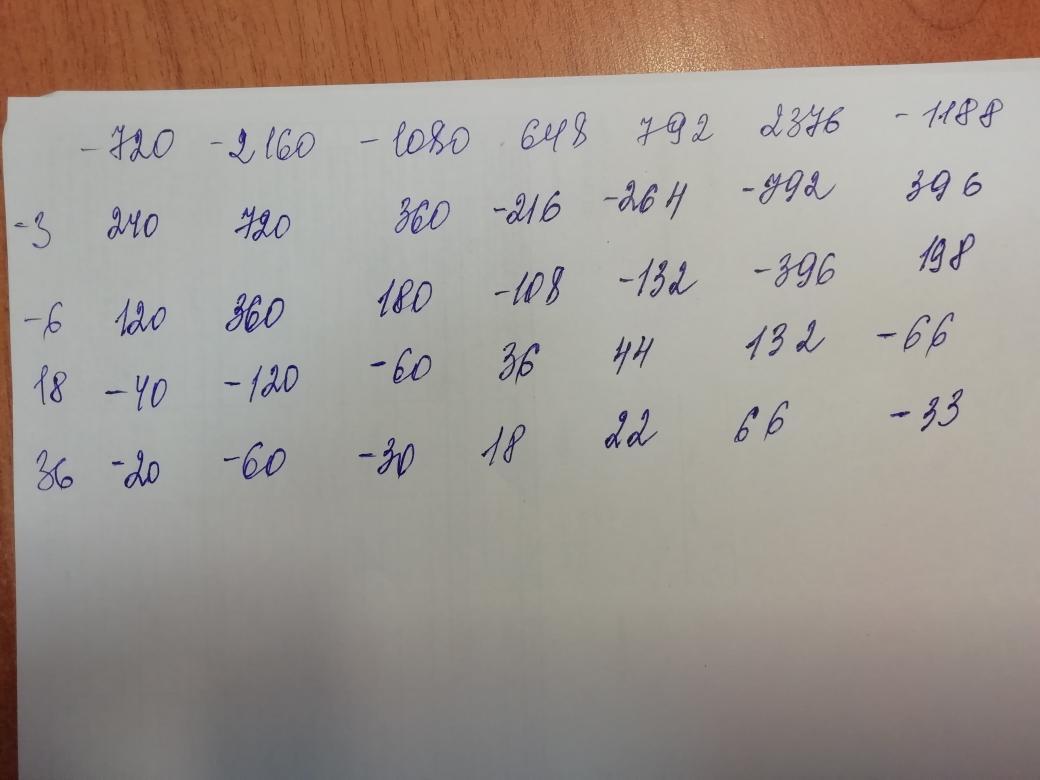 -720 -2160 -1080 648 792 2376 -1188
-3 240 720 360 -216 -264 -792 396
-6 120 360 180 -108 -132 -396 198
18 -40 -120 -60 36 44 132 -66
36 -20 -60 -30 18 22 66 -33